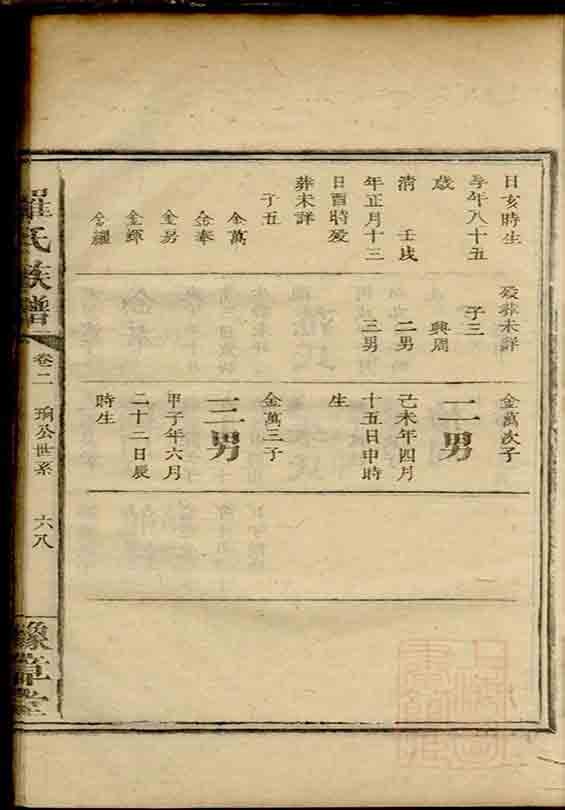 日亥時生
享年八十五
歲
清 壬戌
年正月十三
日酉時歿
葬未詳
子五
金萬
金奉
金男
金輝
金耀
歿葬未詳
子三
興周
二男
三男
金萬次子
二男
己未年四月
十五日申時
生
金萬三子
三男
甲子年六月
二十二日辰
時生
羅氏族譜
卷二
公世系
六八
豫章堂